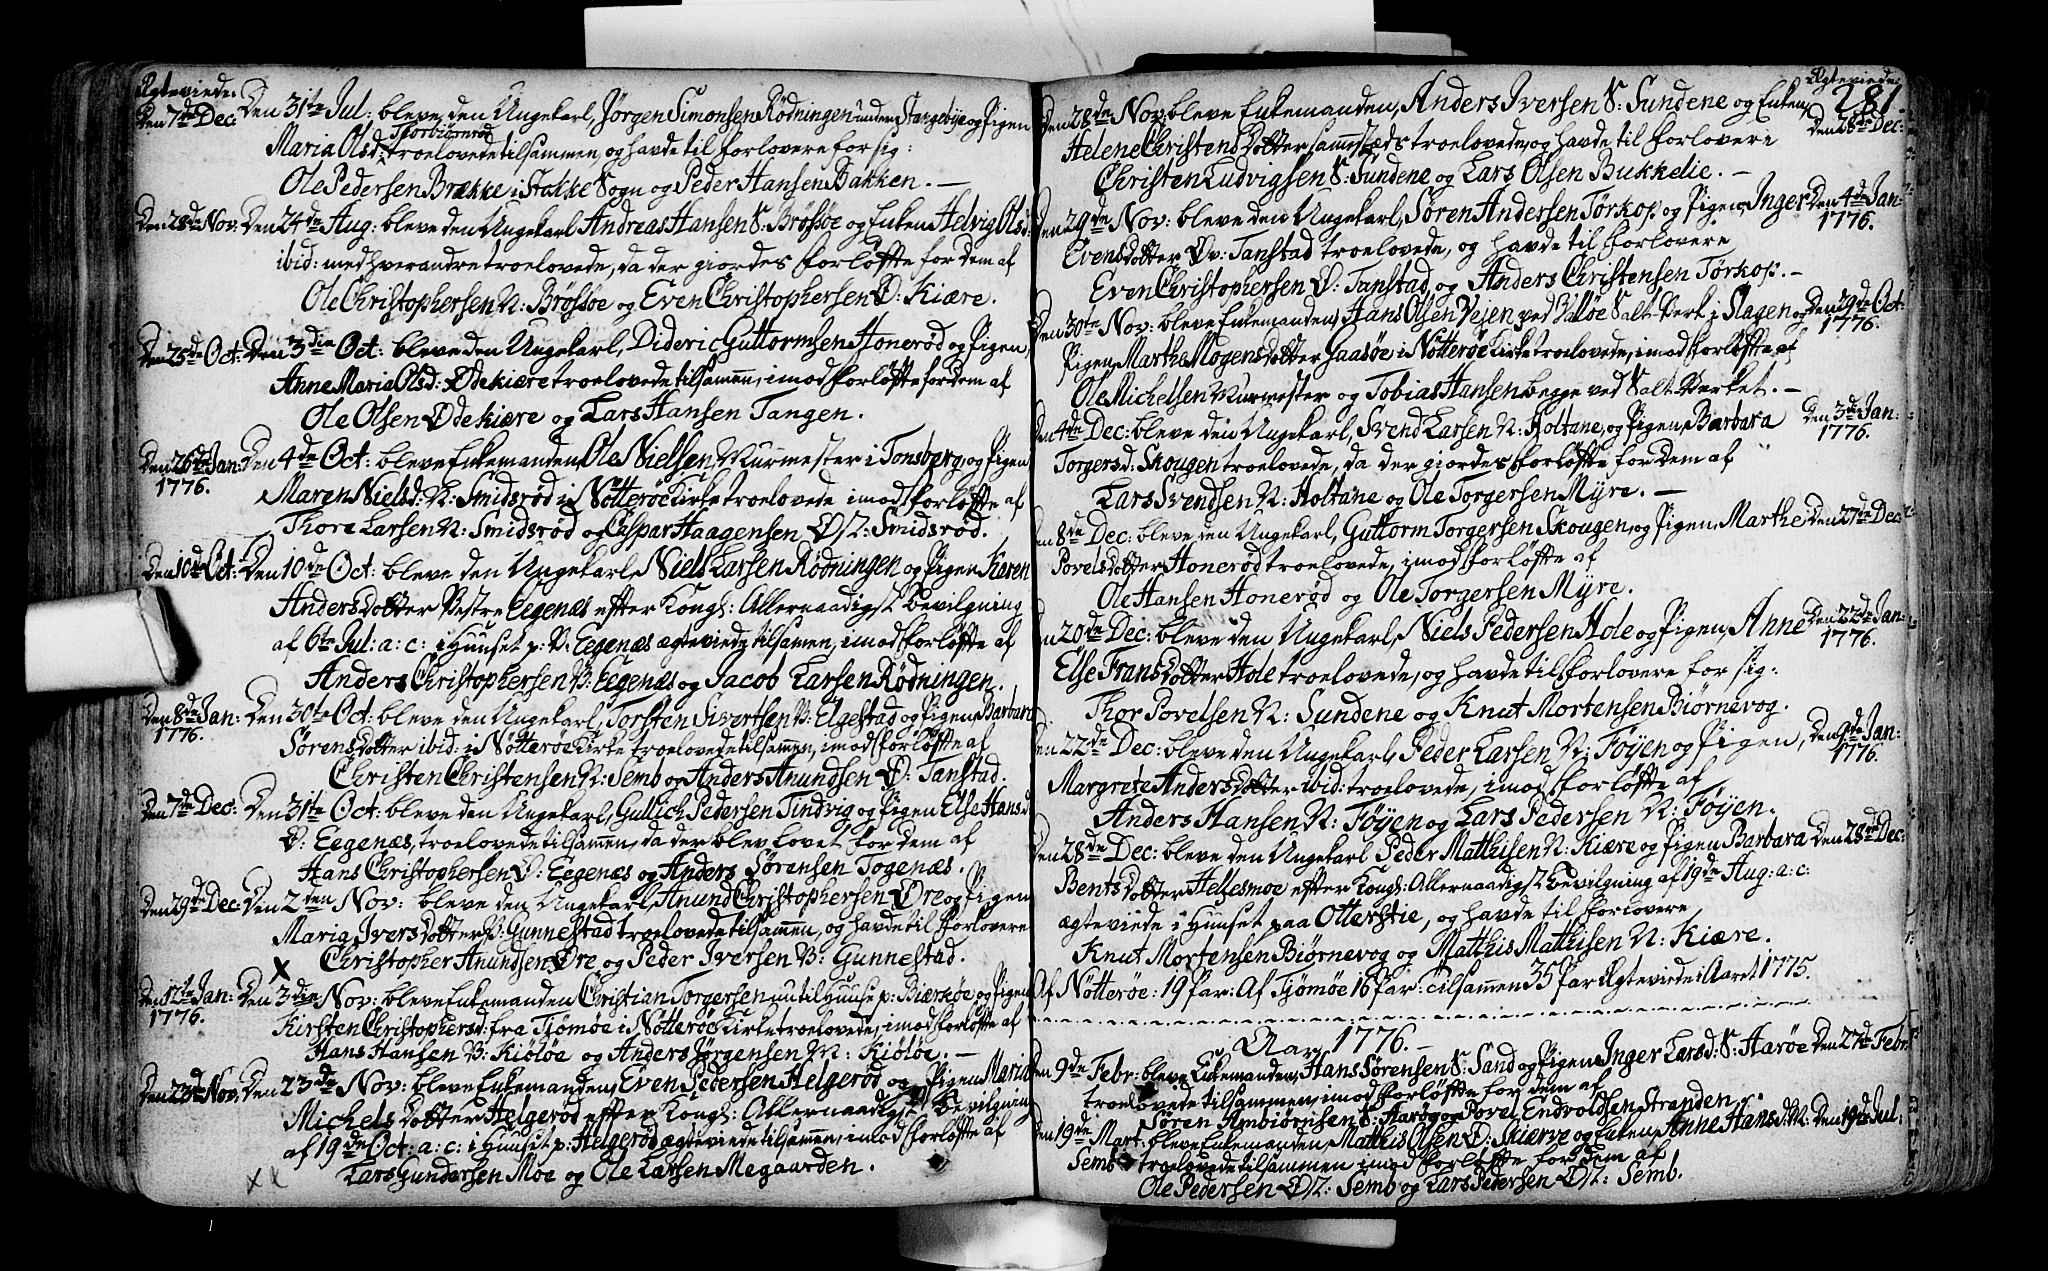 Ægteviede:
Den 7de Dec: Den 31te Jul: bleve den Ungekarl, Jørgen Simonsen Rødningen under Stangebye og Pigen
Maria Olsd: Storbiørnrød troelovede tilsammen, og havde til Forlovere for sig:
Ole Pedersen Brække i Stokke Sogn og Peder Hansen Bakken. —
Den 28de Nov: Den 24de Aug: bleve den Ungekarl Andreas Hansen S: Brøfsøe og Enken Helvig Olsd:
ibid: med hverandre troelovede, da der giordes Forløfte for dem af
Ole Christophersen N: Brøfsøe og Even Christophersen Ø: Kiære.
Den 25de Oct: Den 3die Oct: bleve den Ungekarl, Dideric Guttormsen Honerød og Pigen,
Anne Maria Olsd: Ødekiære troelovede tilsamen, imod Forløfte for dem af
Ole Olsen Ødekiære og Lars Hansen Tangen.
Den 26de Jan: 1776. Den 4de Oct: bleve Enkemanden, Ole Nielsen, Murmester i Tonsberg, og Pigen
Maren Nielsd: N: Smidsrød i Nøtterøe Kirke troelovede imod Forløfte af
Thore Larsen N: Smidsrød og Casper Haagensen Ø/2: Smidsrød.
Den 10de Oct: Den 10de Oct: bleve den Ungekarl, Niels Larsen Rødningen og Pigen Karen
Andersdotter Vestre Eegenæs efter Kongl: Allernaadigst Bevilgning
af 6te Jul: a: c: i Huuset p: V: Eegenæs ægteviede tilsamen, imod Forløfte af
Anders Christophersen V: Eegenæs og Jacob Larsen Rødningen.
Den 8de Jan: 1776. Den 30te Oct: bleve den Ungekarl, Torsten Sivertsen V: Elgestad og Pigen Barbara
Sørensdotter ibid: i Nøtterøe Kirke troelovede tilsammen, imod Forløfte af
Christen Christensen N: Semb og Anders Anundsen Ø: Tanstad.
Den 7de Dec: Den 31te Oct: bleve den Ungekarl, Gullich Pedersen Tindvig og Pigen Else Hansd:
Ø: Eegenæs, troelovede tilsammen, da der blev lovet for dem af
Hans Christophersen Ø: Eegenæs og Anders Sørensen Togenæs.
Den 29de Dec: Den 2den Nov: bleve den Ungekarl, Anund Christophersen Øre og Pigen
Maria Iversdotter V: Gunnestad troelovede tilsammen, og havde til Forlovere
Christopher Anundsen Øre og Peder Iversen V: Gunnestad.
x
Den 12te Jan: 1776. Den 3die Nov: bleve Enkemanden Christian Torgersen nu til Huuse p: Bierkøe og Pigen
Kirsten Christophersd: fra Tjømøe i Nøtterøe Kirke troelovede, imod Forløfte af
Hans Hansen V: Kiøløe og Anders Jørgensen M: Kiøløe. —
Den 23de Nov: Den 23de Nov: bleve Enkemanden, Even Pedersen Helgerød og Pigen Maria
Michelsdotter Helgerød efter Kongl: Allernaadigst Bevilgning
af 19de Oct: a: c: i Huuset p: Helgerød ægteviede tilsammen, imod Forløfte af
Lars Gundersen Moe og Ole Larsen Megaarden.
xx
Ægteviede:
281.
Den 28de Nov: bleve Enkemanden, Anders Iversen S: Sundene og Enken, Den 28de Dec:
Helene Christensdotter sammesteds troelovede, og havde til Forlovere
Christen Ludvigsen S: Sundene og Lars Olsen Bukkelie. —
Den 29de Nov: bleve den Ungekarl, Søren Andersen Torkop og Pigen, Inger Den 4de Jan: 1776.
Evensdotter Øv: Tanstad troelovede, og havde til Forlovere
Even Christophersen Ø: Tanstad, og Anders Christensen Torkop. —
Den 30te Nov: bleve Enkemanden, Hans Olsen Vejen ved Valløe Salt-Verk i Slagen og Den 29de Oct: 1776.
Pigen Marthe Mogensdotter Gaasøe i Nøtterøe Kirke troelovede, imod Forløfte af
Ole Michelsen Murmester og Tobias Hansen begge ved Salt-Verket. —
Den 4de Dec: bleve den Ungekarl, Svend Larsen N: Holtane, og Pigen, Barbara Den 3die Jan: 1776.
Torgersd: Skougen troelovede, da der giordes Forløfte for dem af
Lars Svendsen N: Holtane og Ole Torgersen Myre. —
Den 8de Dec: bleve den Ungekarl, Guttorm Torgersen Skougen, og Pigen, Marthe Den 27de Dec:
Povelsdotter Honerød troelovede, imod Forløfte af
Ole Hansen Honerød og Ole Torgersen Myre.
Den 20de Dec: bleve den Ungekarl, Niels Pedersen Hole og Pigen, Anne Den 22de Jan: 1776.
Else Fransdotter Hole troelovede, og havde til Forlovere for sig:
Thor Povelsen N: Sundene og Knut Mortensen Biørnevog.
Den 22de Dec: bleve den Ungekarl, Peder Larsen N: Føyen og Pigen, Den 9de Jan: 1776.
Margrete Andersdotter ibid: troelovede, imod Forløfte af
Anders Hansen N: Føyen og Lars Pedersen N: Føyen.
Den 28de Dec: bleve den Ungekarl Peder Mathisen N: Kiære og Pigen Barbara Den 28de Dec:
Bentsdotter Hellesmoe efter Kongl: Allernaadigst Bevilgning af 19de Aug: a: c:
ægteviede i Huuset paa Otterstie, og havde til Forlovere
Knut Mortensen Biørnevog og Matthis Mathisen N: Kiære.
Af Nøtterøe: 19 Par: Af Tjømøe 16 Par: tilsammen 35 Par Ægteviede i Aaret 1775.
Aar 1776. —
Den 9de Febr: bleve Enkemanden, Hans Sørensen S: Sand og Pigen Inger Larsd: S: Aarøe Den 27de Febr:
troelovede tilsammen, imod Forløfte for dem af
Søren Ambiørnsen S: Aarøe og Povel Endvoldsen Stranden.
Den 19de Mart: bleve Enkemanden, Matthis Olsen Ø: Skierve og Enken Anne Hansd: N: Den 19de Jul:
Semb troelovede tilsammen imod Forløfte for dem af
Ole Pedersen Ø/2: Semb og Lars Pedersen Ø/2: Semb.